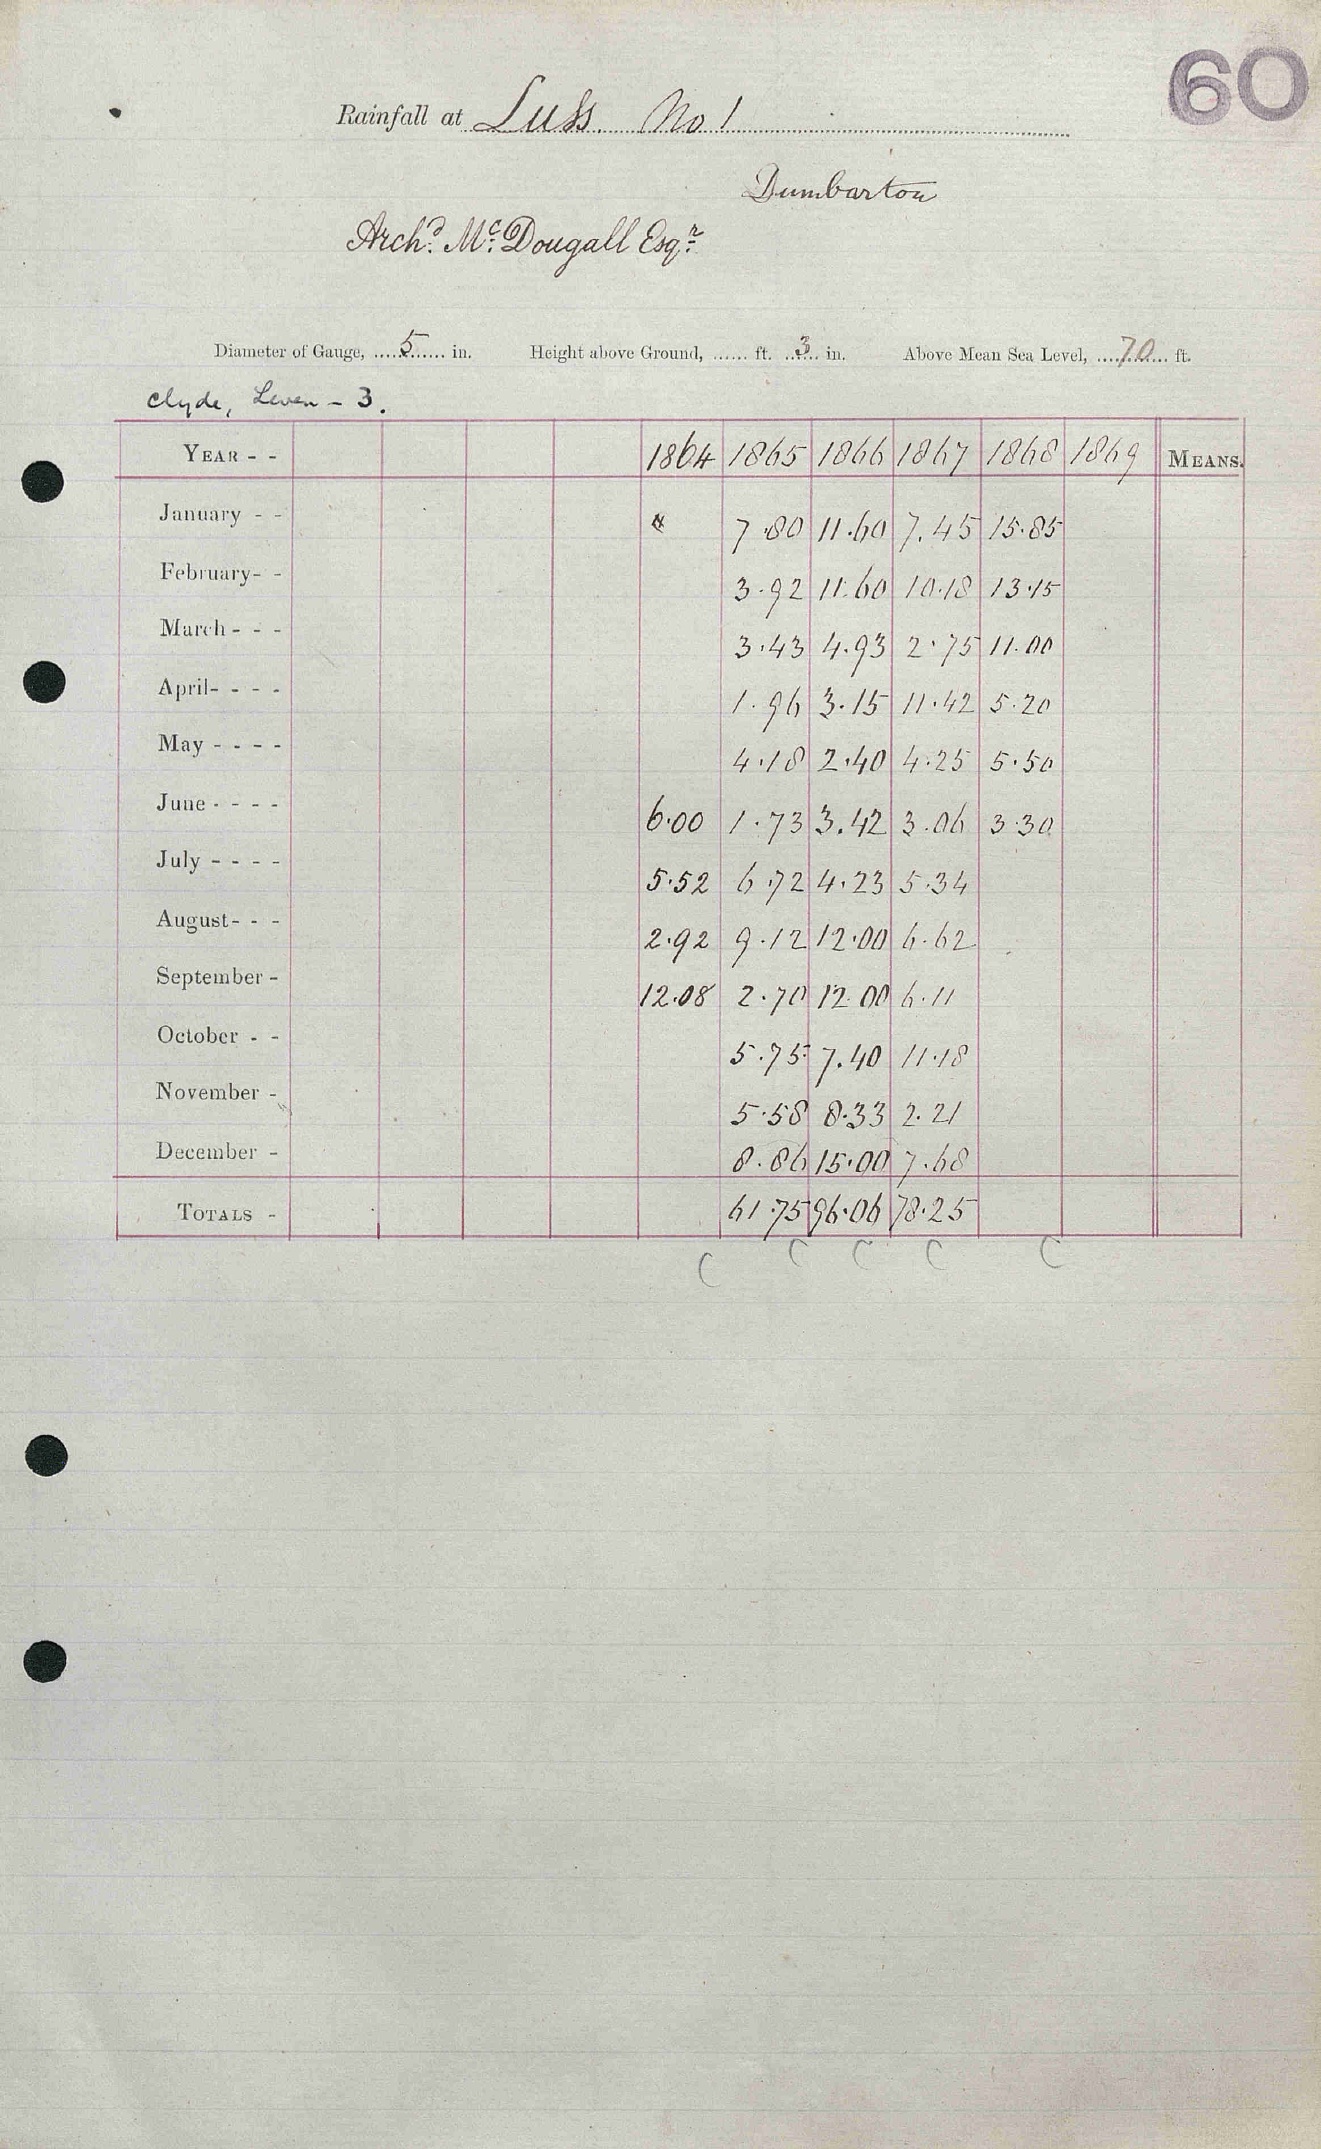 60
Rainfall at Luss. No 1
Dumbarton
Archd. Mc. Dougall Esqr.
Diameter of Gauge, 5 in. Height above Ground, ...... ft. 3 in. Above Mean Sea Level, 70 ft.
Clyde, Leven - 3.
YEAR - - 1864 1865 1866 1867 1868 1869 MEANS.
January - - 7.80 11.60 7.45 15.85
February - - 3.92 11.60 10.18 13.15
March - - - 3.43 4.93 2.75 11.00
April - - - - 1.96 3.15 11.42 5.20
May - - - - 4.18 2.40 4.25 5.50
June - - - - 6.00 1.73 3.42 3.06 3.30
July - - - - 5.52 6.72 4.23 5.34
August - - - 2.92 9.12 12.00 6.62
September - 12.08 2.70 12.00 6.11
October - - 5.75 7.40 11.18
November - 5.58 8.33 2.21
December - 8.86 15.00 7.68
TOTALS - 61.75 96.06 78.25
C C C C C